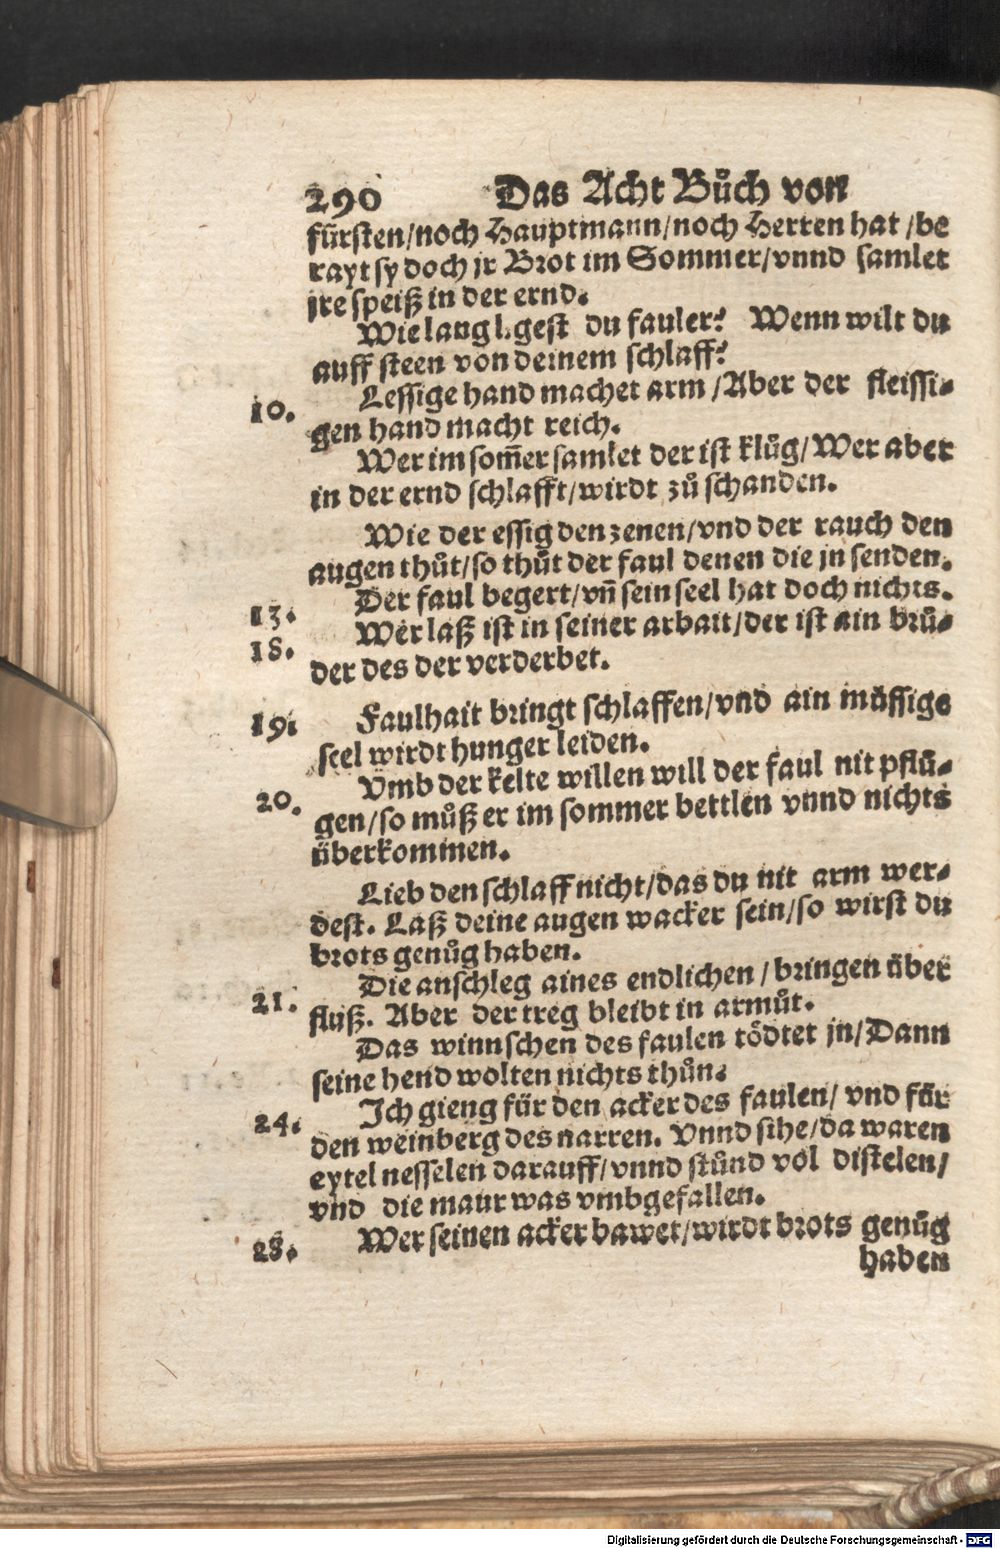 290 Das Acht Bůch von
fürsten/noch Hauptmann/noch Herren hat /be
rayt sy doch jr Brot im Sommer/vnnd samlet
jre speiß in der ernd.
Wie lang ligest du fauler? Wenn wilt du
auff steen von deinem schlaff?
10. Lessige hand machet arm /Aber der fleissi-
gen hand macht reich.
Wer im som̄er samlet der ist klůg/Wer aber
in der ernd schlafft/wirdt zů schanden.
Wie der essig den zenen/vnd der rauch den
augen thůt/so thůt der faul denen die jn senden.
13. Der faul begert/vn̄ sein seel hat doch nichts.
18. Wer laß ist in seiner arbait/der ist ain brů-
der des der verderbet.
19. Faulhait bringt schlaffen/vnd ain müssige
seel wirdt hunger leiden.
20. Vmb der kelte willen will der faul nit pflü-
gen/so můß er im sommer bettlen vnnd nichts
überkommen.
Lieb den schlaff nicht/das du nit arm wer-
dest. Laß deine augen wacker sein/so wirst du
brots genůg haben.
21. Die anschleg aines endlichen / bringen über
fluß. Aber der treg bleibt in armůt.
Das winnschen des faulen tödtet jn/Dann
seine hend wolten nichts thůn.
24. Ich gieng für den acker des faulen/ vnd für
den weinberg des narren. Vnnd sihe/da waren
eytel nesselen darauff/vnnd stůnd vol distelen/
vnd die maur was vmbgefallen.
28. Wer seinen acker bawet/wirdt brots genůg
haben
Digitalisierung gefördert durch die Deutsche Forschungsgemeinschaft - DFG